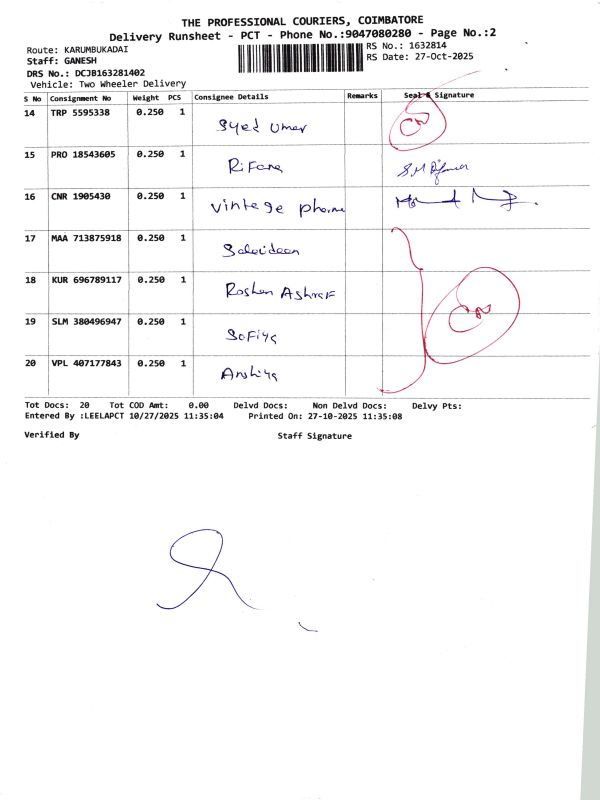 THE PROFESSIONAL COURIERS, COIMBATORE
Delivery Runsheet - PCT - Phone No.:9047080280 - Page No.:2
Route: KARUMBUKADAI
RS No.: 1632814
Staff: GANESH
RS Date: 27-Oct-2025
DRS No.: DCJB163281402
Vehicle: Two Wheeler Delivery
S No Consignment No Weight PCS Consignee Details Remarks Seal & Signature
14 TRP 5595338 0.250 1 Syed Umar
15 PRO 18543605 0.250 1 Rifana
16 CNR 1905430 0.250 1 vintage
17 MAA 713875918 0.250 1
18 KUR 696789117 0.250 1 Roshan Ashraf
19 SLM 380496947 0.250 1 Sofiya
20 VPL 407177843 0.250 1 Anshiya
Tot Docs: 20 Tot COD Amt: 0.00 Delvd Docs: Non Delvd Docs: Delvy Pts:
Entered By :LEELAPCT 10/27/2025 11:35:04 Printed On: 27-10-2025 11:35:08
Verified By Staff Signature